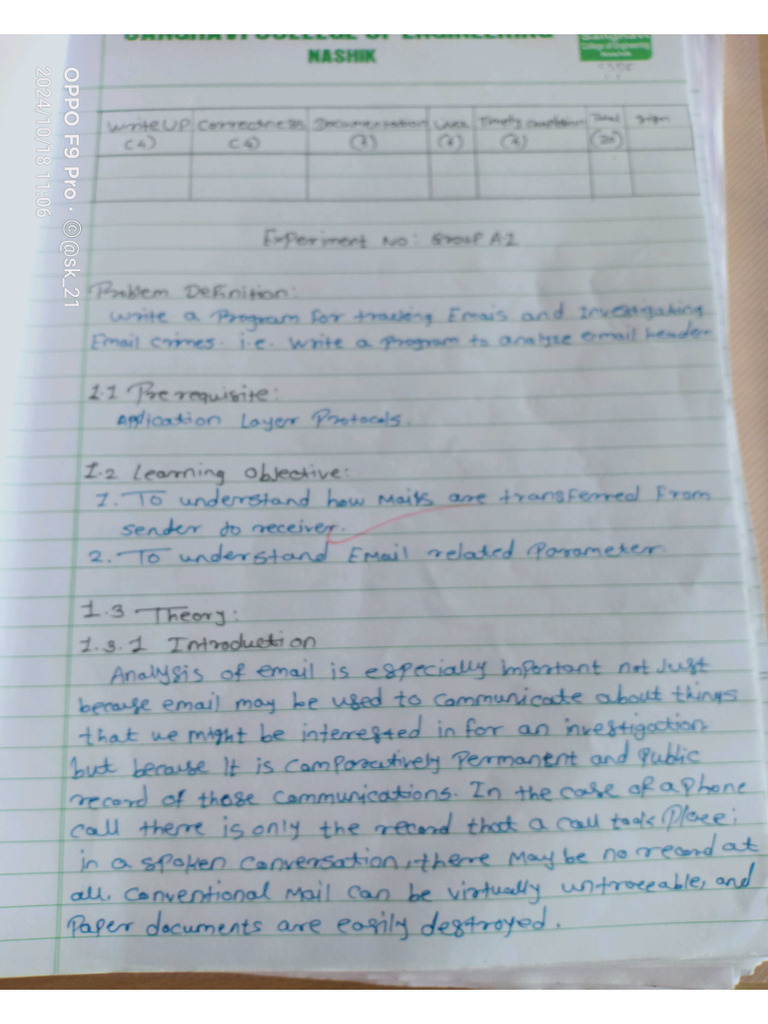 COLLEGE OF ENGINEERING
NASHIK
College of Engineering
Write UP Correctness Documentation Viva Timely Completion Total Sign
(4) (4) (4) (4) (4) (20)
Experiment No: Group A1
Problem Definition:
Write a Program for tracking Emais and Investigating
Email crimes. i.e. Write a Program to analyze email header
1.1 Pre requisite:
Application Layer Protocals.
1.2 Learning Objective:
1. To understand how Mails are transferred From
sender to receiver.
2. To understand Email related Parameter.
1.3 Theory:
1.3.1 Introduction
Analysis of email is especially important not Just
because email may be used to communicate about things
that we might be interested in for an investigation
but because It is comparatively Permanent and Public
record of these communications. In the case of a phone
call there is only the record that a call took Place;
in a spoken conversation, there may be no record at
all. Conventional Mail can be virtually untraceable, and
Paper documents are easily destroyed.
OPPO F9 Pro · ©@sk_21
2024/10/18 11:06